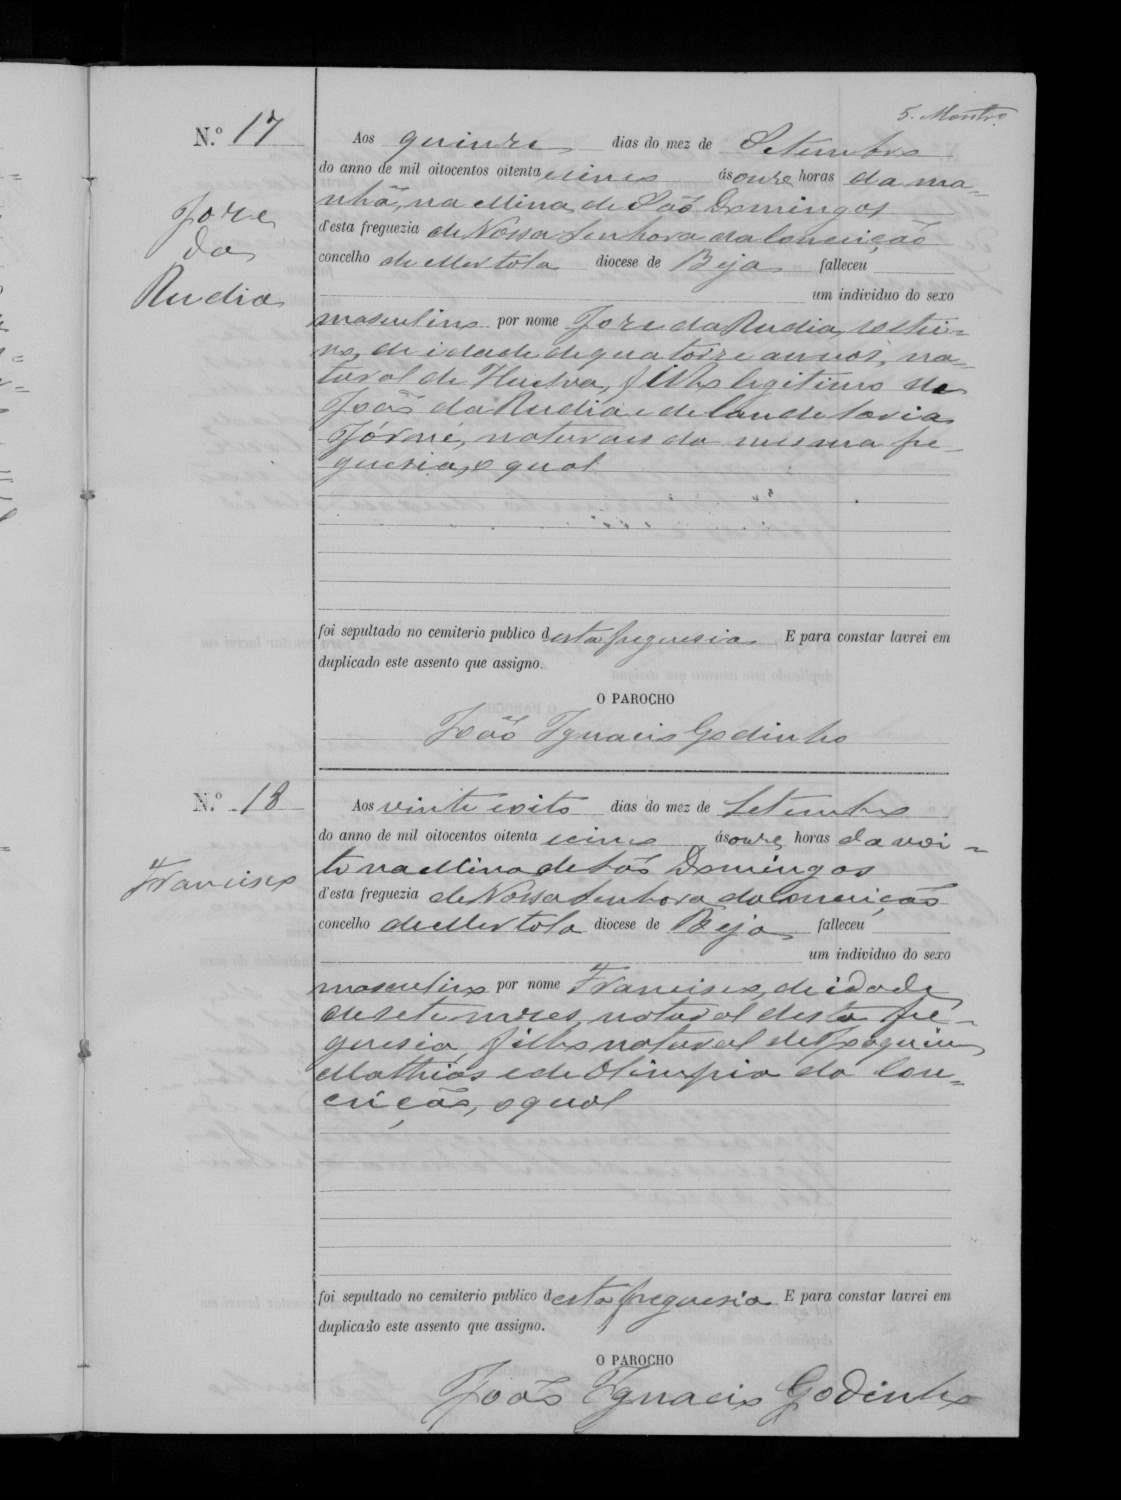 5. Montro
N.º 17
Aos quinze dias do mez de Setembro
do anno de mil oitocentos oitenta e cinco ás onze horas da ma=
nhã, na Mina de São Domingos
d'esta freguezia de Nossa Senhora da Conceição
concelho de Mertola diocese de Beja falleceu
um individuo do sexo
Jose
da
Rudia
masculino por nome Jose da Rudia, soltei=
ro, de idade de quatorze annos, na=
tural de Huelva, filho legitimo de
João da Rudia e de Candelaria
naturaes da mesma fre=
guesia, o qual
foi sepultado no cemiterio publico desta freguesia E para constar lavrei em
duplicado este assento que assigno.
O PAROCHO
João Ignacio Godinho
N.º 18
Aos vinte e oito dias do mez de Setembro
do anno de mil oitocentos oitenta e cinco ás onze horas da noi=
te na Mina de São Domingos
Francisco
d'esta freguezia de Nossa Senhora da Conceição
concelho de Mertola diocese de Beja falleceu
um individuo do sexo
masculino por nome Francisco, de idade
de sete mezes, natural desta fre=
guesia, filho natural de Joaquim
Mathias e de Olimpia da Con=
ceição, o qual
foi sepultado no cemiterio publico desta freguesia E para constar lavrei em
duplicado este assento que assigno.
O PAROCHO
João Ignacio Godinho